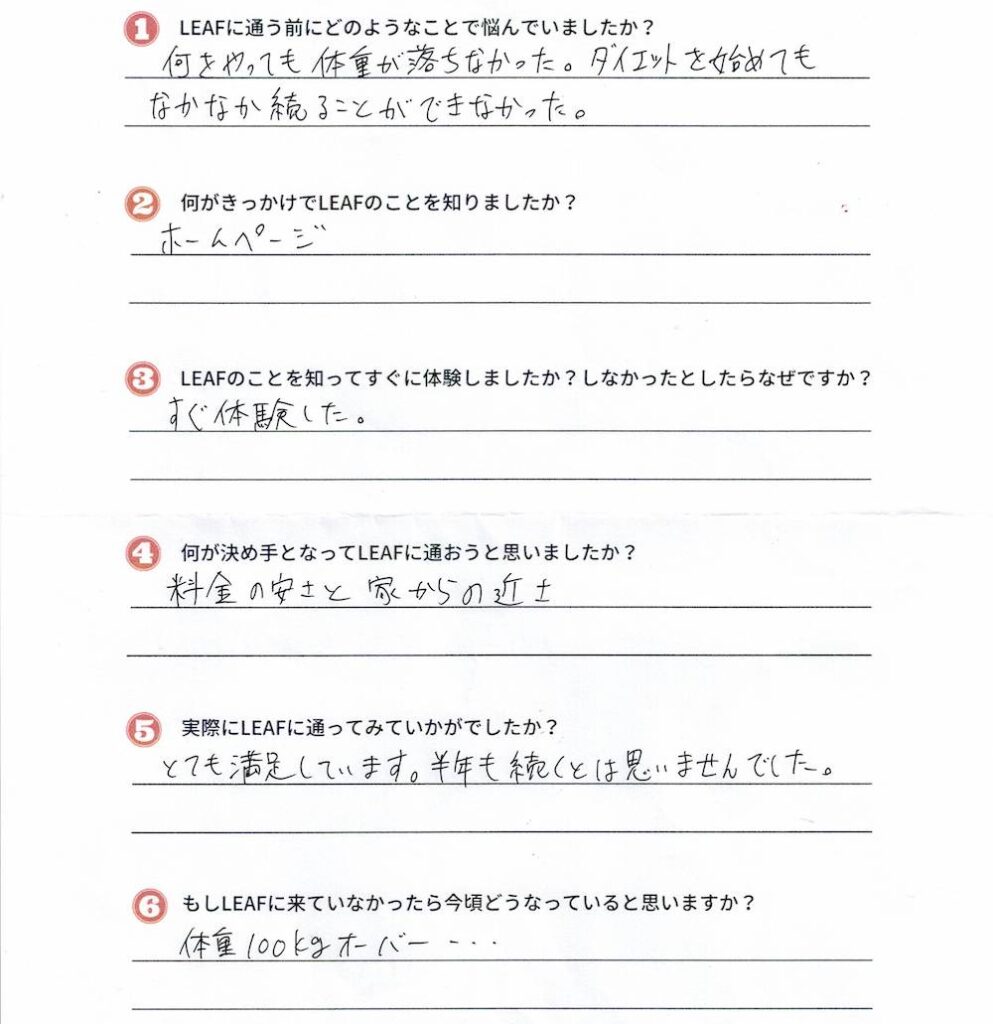 1 LEAFに通う前にどのようなことで悩んでいましたか?
何をやっても体重が落ちなかった。ダイエットを始めても
なかなか続ることができなかった。
2 何がきっかけでLEAFのことを知りましたか?
ホームページ
3 LEAFのことを知ってすぐに体験しましたか?しなかったとしたらなぜですか?
すぐ体験した。
4 何が決め手となってLEAFに通おうと思いましたか?
料金の安さと家からの近さ
5 実際にLEAFに通ってみていかがでしたか?
とても満足しています。半年も続くとは思いませんでした。
6 もしLEAFに来ていなかったら今頃どうなっていると思いますか?
体重100kgオーバー・・・